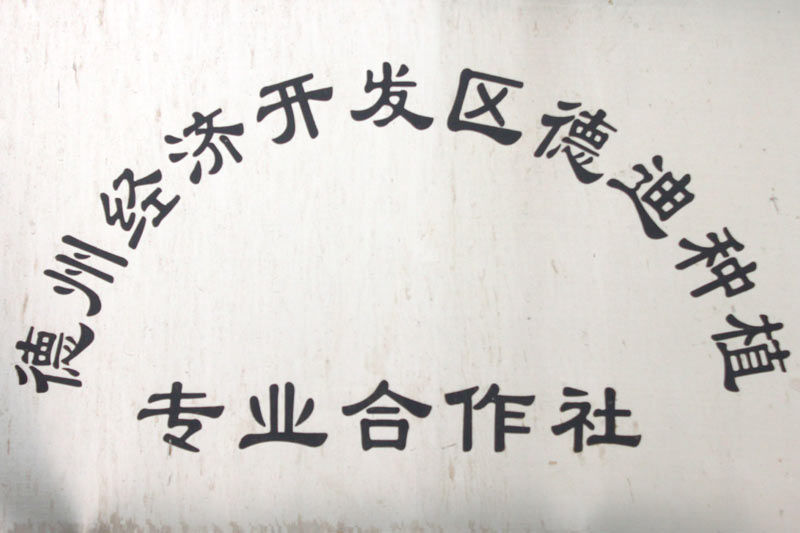 德州经济开发区德迪种植
专业合作社